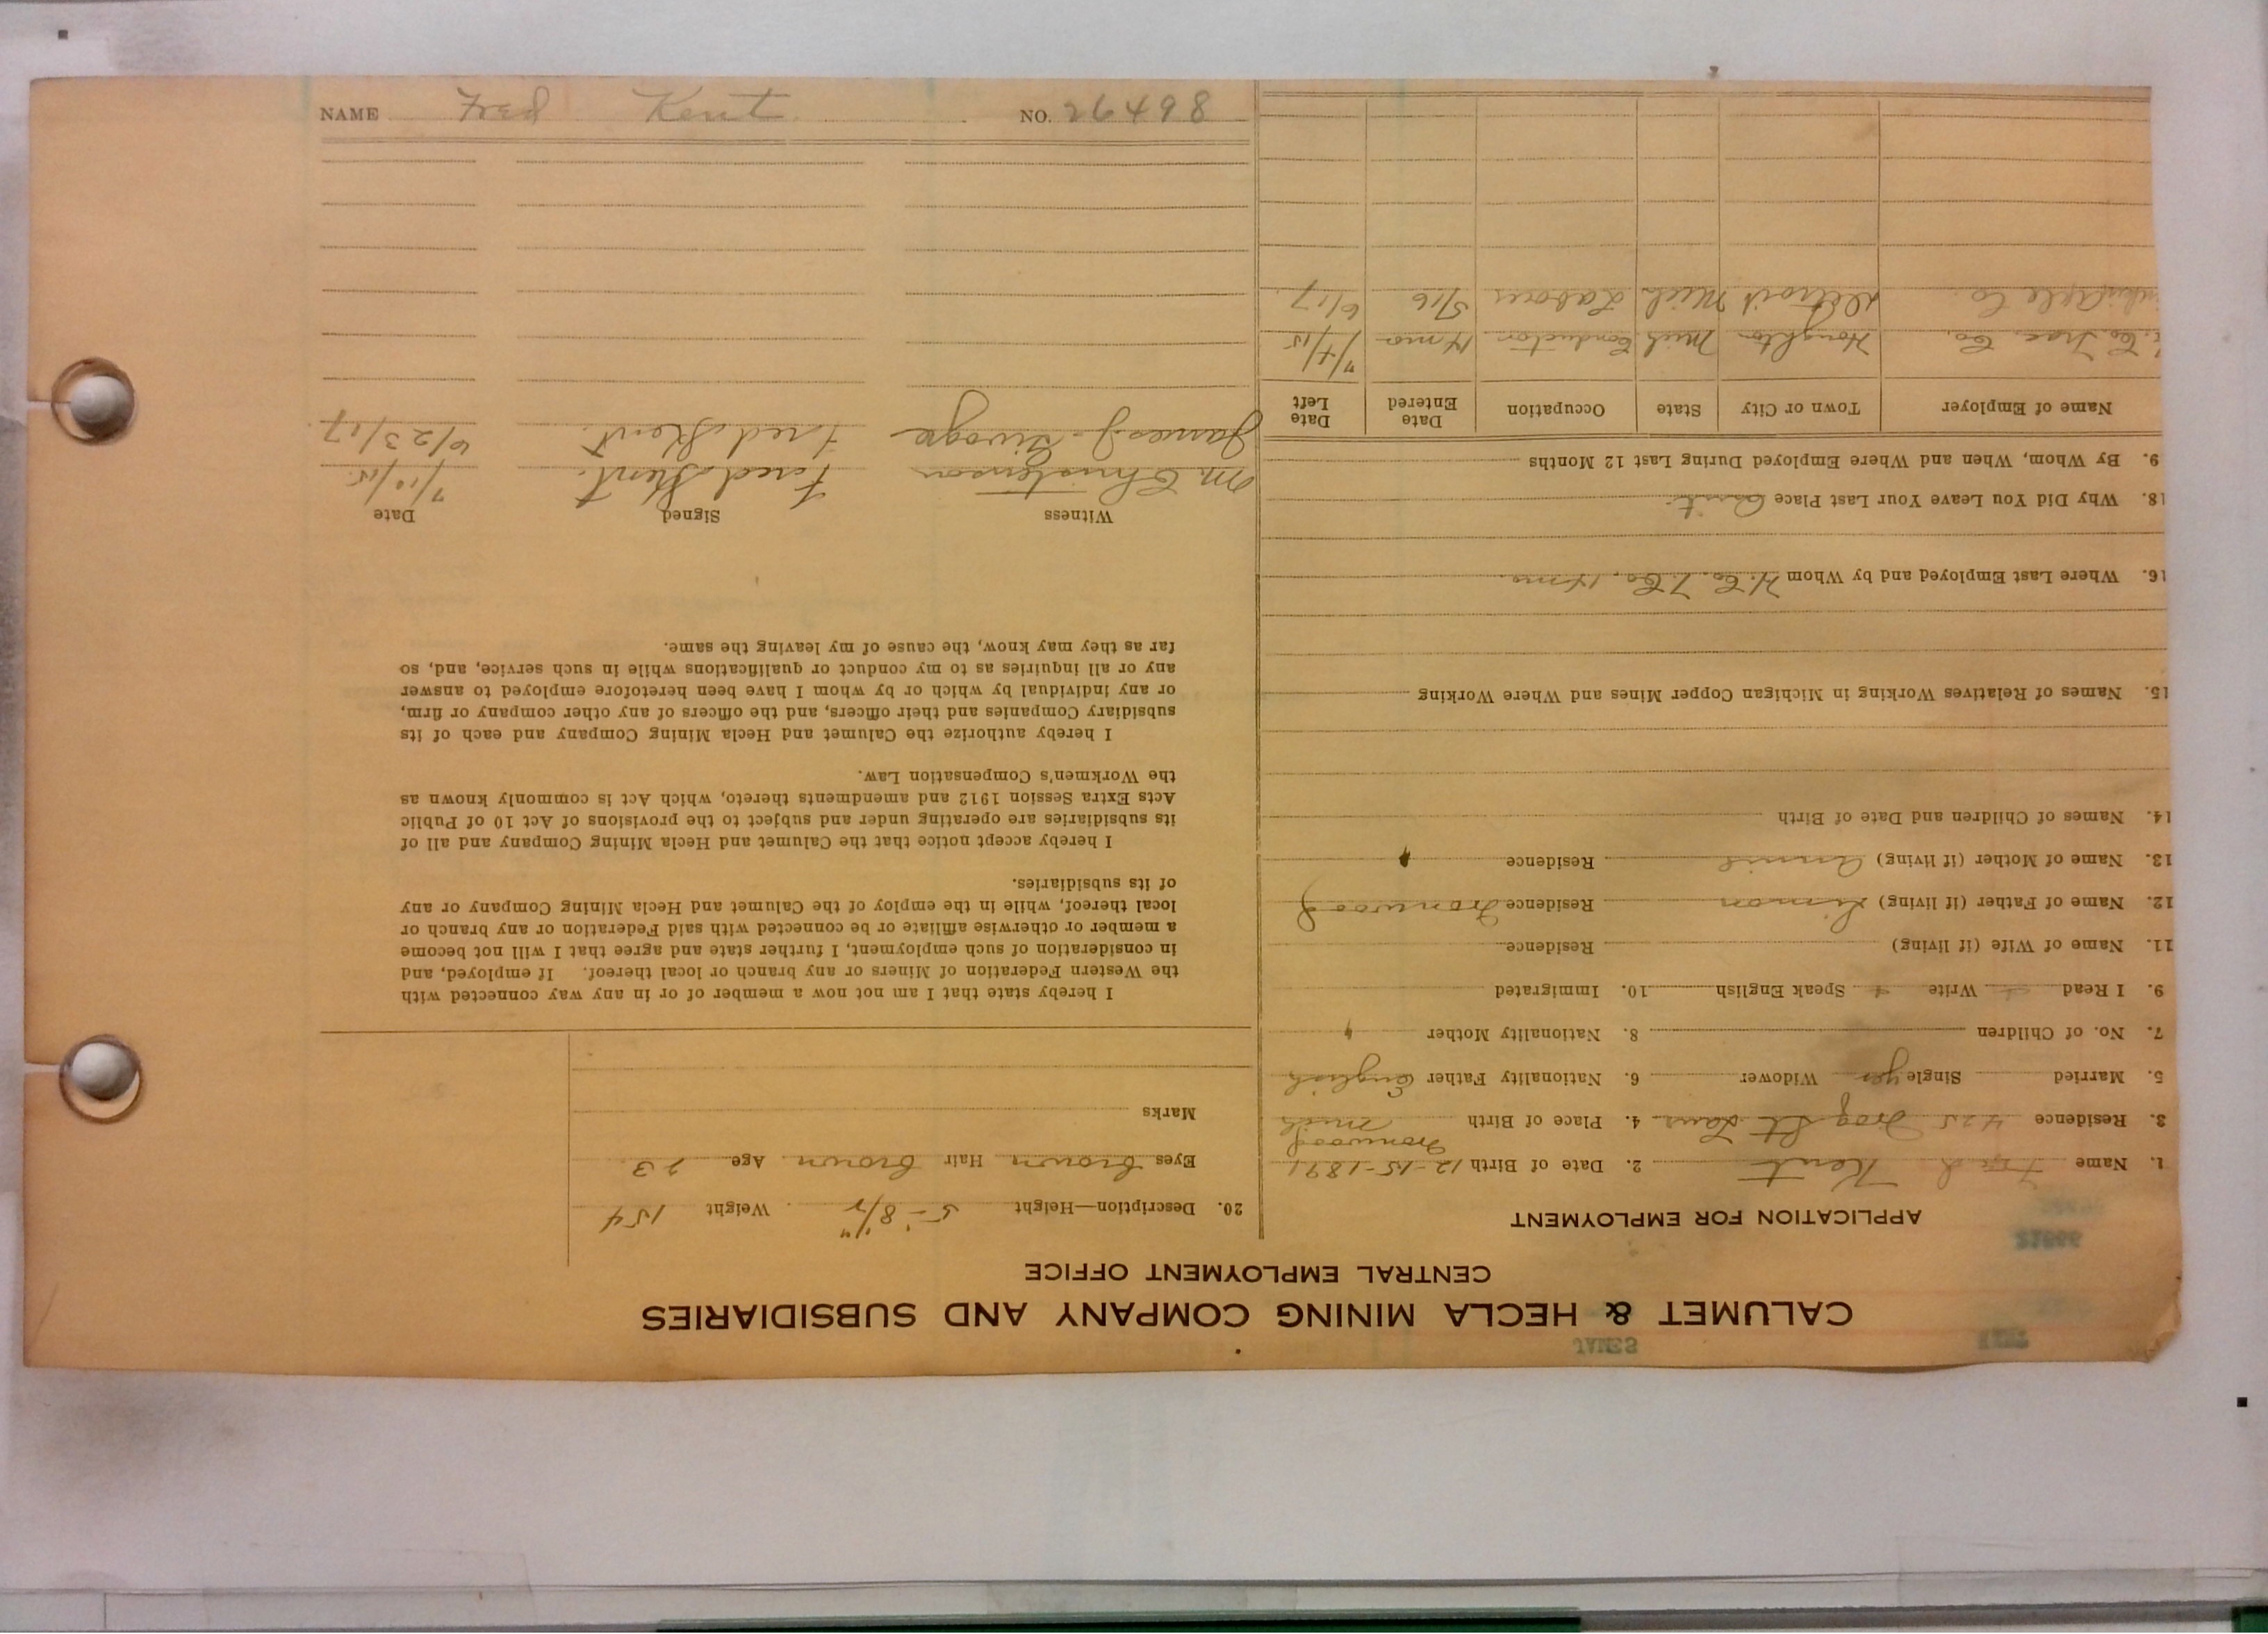 CALUMET & HECLA MINING COMPANY AND SUBSIDIARIES
CENTRAL EMPLOYMENT OFFICE
APPLICATION FOR EMPLOYMENT
1. Name Fred Kent 2. Date of Birth 12-15-1891
Ironwood
3. Residence 425 St Laur 4. Place of Birth Mich
5. Married Single yes Widower 6. Nationality Father English
7. No. of Children 8. Nationality Mother "
9. I Read Write Speak English 10. Immigrated
11. Name of Wife (if living) Residence
12. Name of Father (if living) Simon Residence Ironwood
13. Name of Mother (if living) Annie Residence "
14. Names of Children and Date of Birth
15. Names of Relatives Working in Michigan Copper Mines and Where Working
16. Where Last Employed and by Whom H. Co. T. Co, 14 mo.
18. Why Did You Leave Your Last Place Quit.
9. By Whom, When and Where Employed During Last 12 Months
Name of Employer Town or City State Occupation Date Entered Date Left
Co. Trac. Co. Houghton Mich Conductor 14 mo 7/4/15
Co. Detroit Mich Laborer 5/16 6/17
20. Description—Height 5-'8 1/2" Weight 154
Eyes brown Hair brown Age 23
Marks
I hereby state that I am not now a member of or in any way connected with
the Western Federation of Miners or any branch or local thereof. If employed, and
in consideration of such employment, I further state and agree that I will not become
a member or otherwise affiliate or be connected with said Federation or any branch or
local thereof, while in the employ of the Calumet and Hecla Mining Company or any
of its subsidiaries.
I hereby accept notice that the Calumet and Hecla Mining Company and all of
its subsidiaries are operating under and subject to the provisions of Act 10 of Public
Acts Extra Session 1912 and amendments thereto, which Act is commonly known as
the Workmen's Compensation Law.
I hereby authorize the Calumet and Hecla Mining Company and each of its
subsidiary Companies and their officers, and the officers of any other company or firm,
or any individual by which or by whom I have been heretofore employed to answer
any or all inquiries as to my conduct or qualifications while in such service, and, so
far as they may know, the cause of my leaving the same.
Witness Signed Date
M Christensen Fred Kent. 7/10/15.
James J. Fred Kent. 6/23/17.
NAME Fred Kent NO. 26498